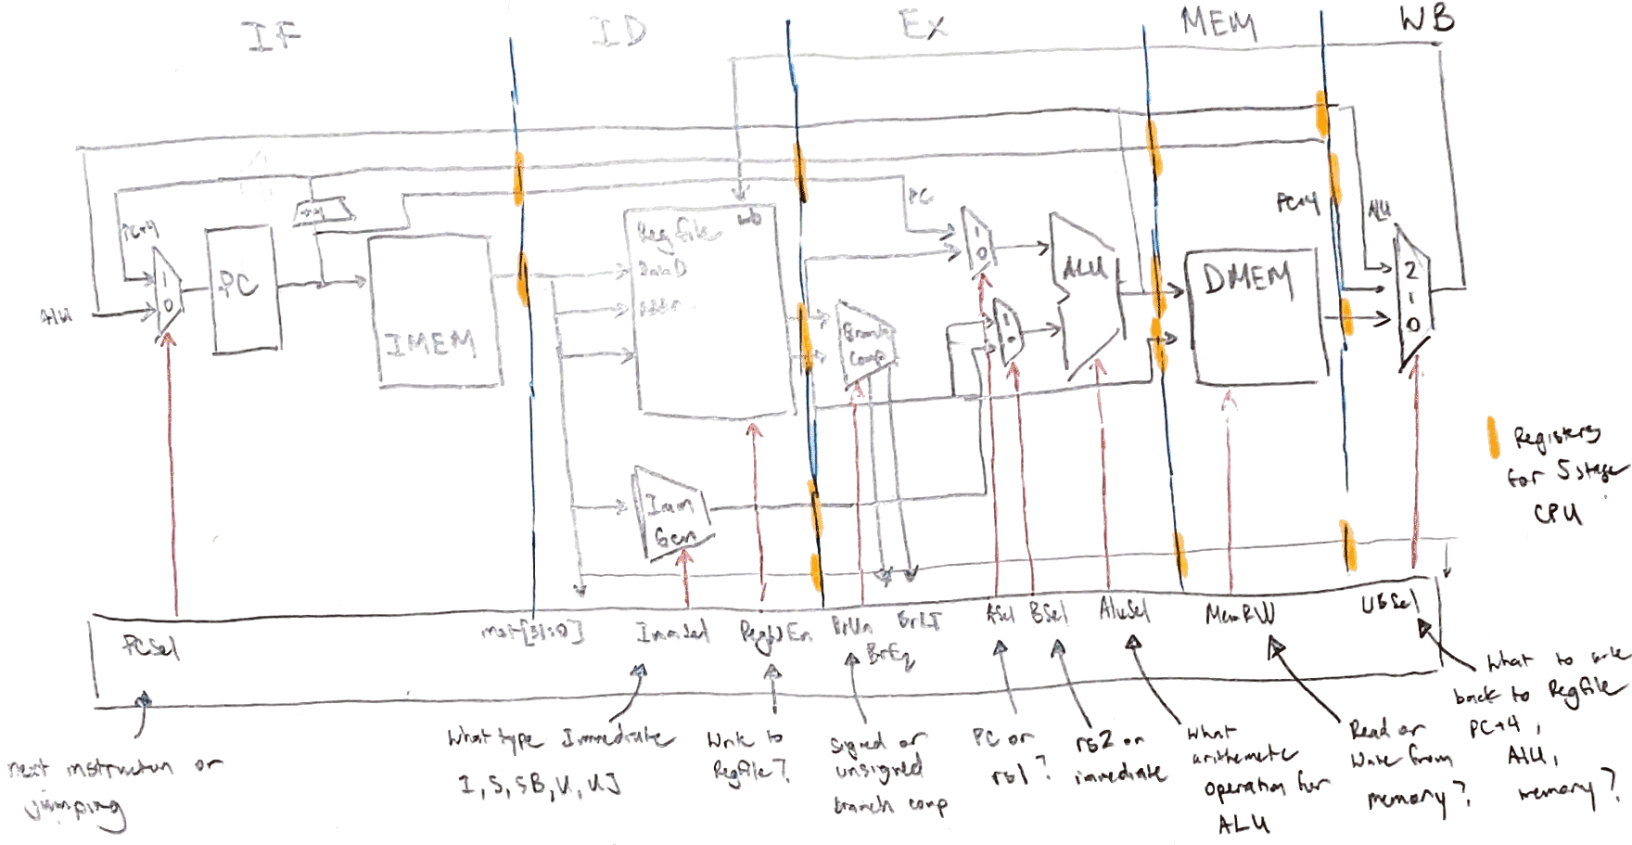 IF
ID
Ex
MEM
WB
PC+4
ALU
1
0
PC
+4
IMEM
Reg file
wb
DataD
Branch
comp
Imm
Gen
PC
1
0
1
0
ALU
DMEM
PC+4
ALU
2
1
0
Registers
for 5 stage
CPU
PCSel
inst[31:0]
ImmSel
RegWEn
BrUn
BrEq
BrLT
ASel
BSel
AluSel
MemRW
WBSel
next instruction or
jumping
What type Immediate
I, S, SB, U, UJ
Write to
Regfile?
signed or
unsigned
branch comp
PC or
rs1?
rs2 or
immediate
what
arithmetic
operation for
ALU
Read or
Write from
memory?
What to write
back to Regfile
PC+4,
ALU,
memory?